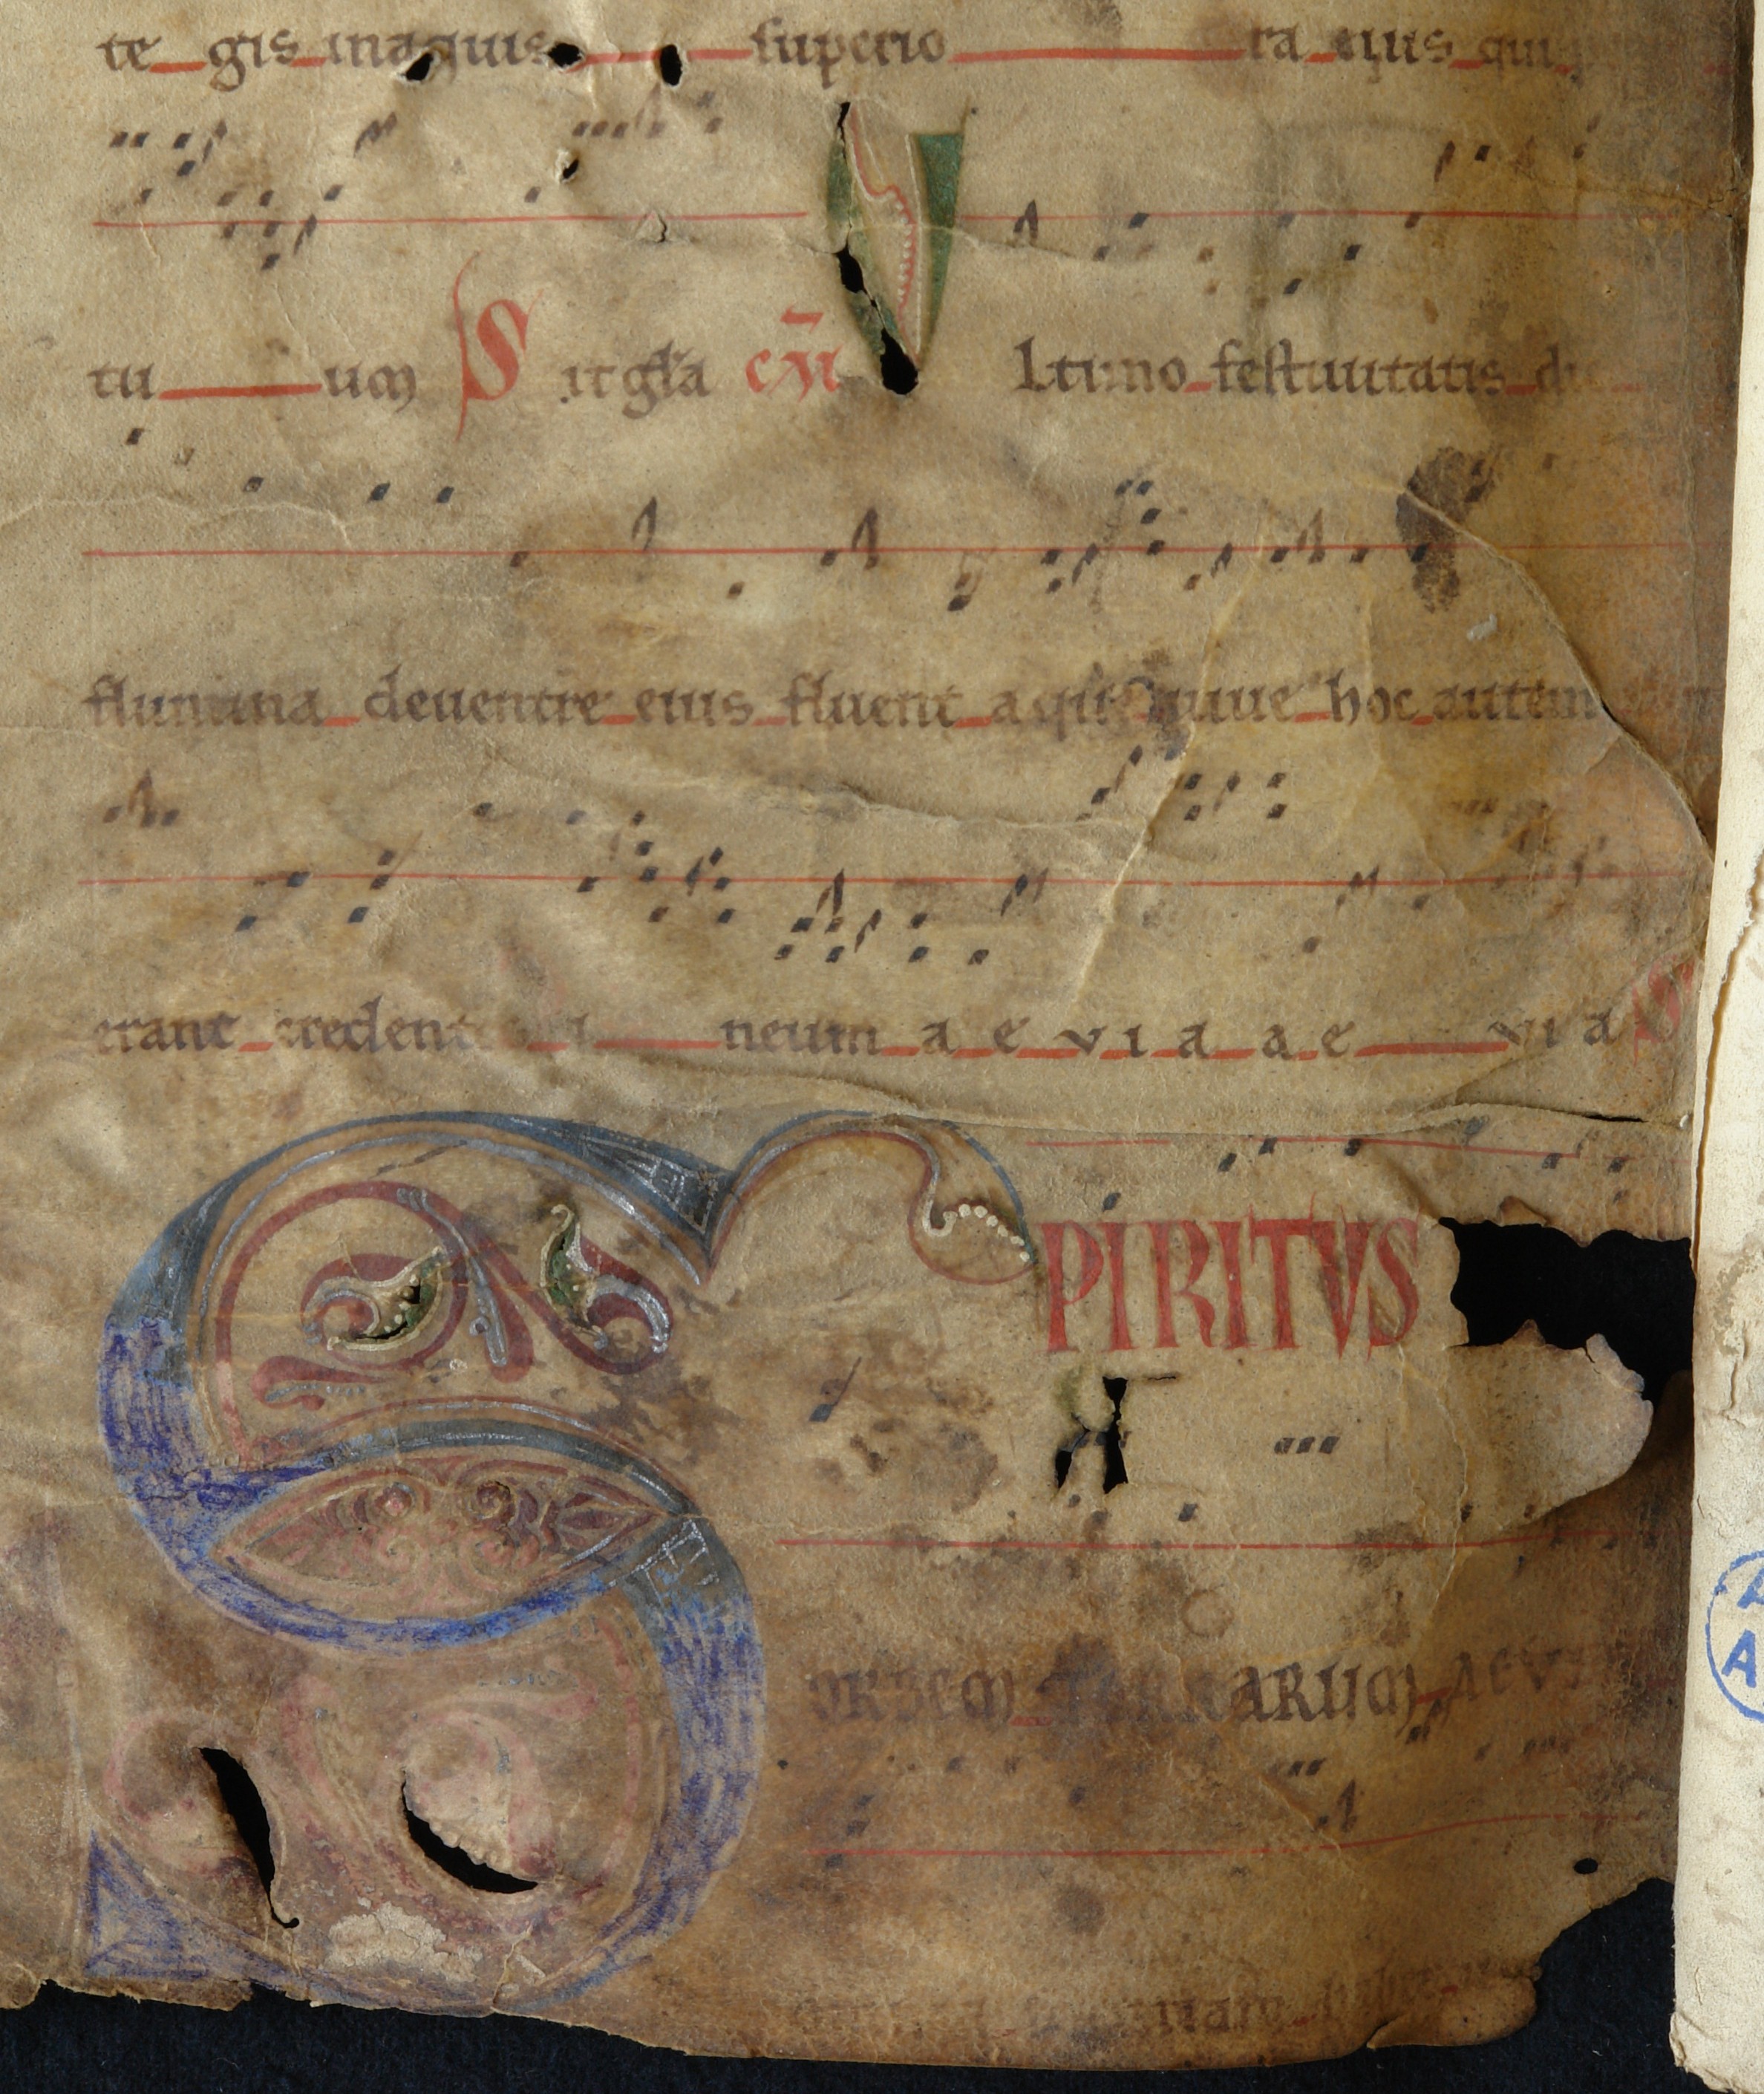 te gis in aquis superio ra eius qui
tu um S it gła cōi V ltimo festiuitatis die
flumina deuentre eius fluent aque uiue hoc autem
erant credent i ineum a e v i a a e v i a S
SPIRITVS
ORBEM TERRARUM AEVIA